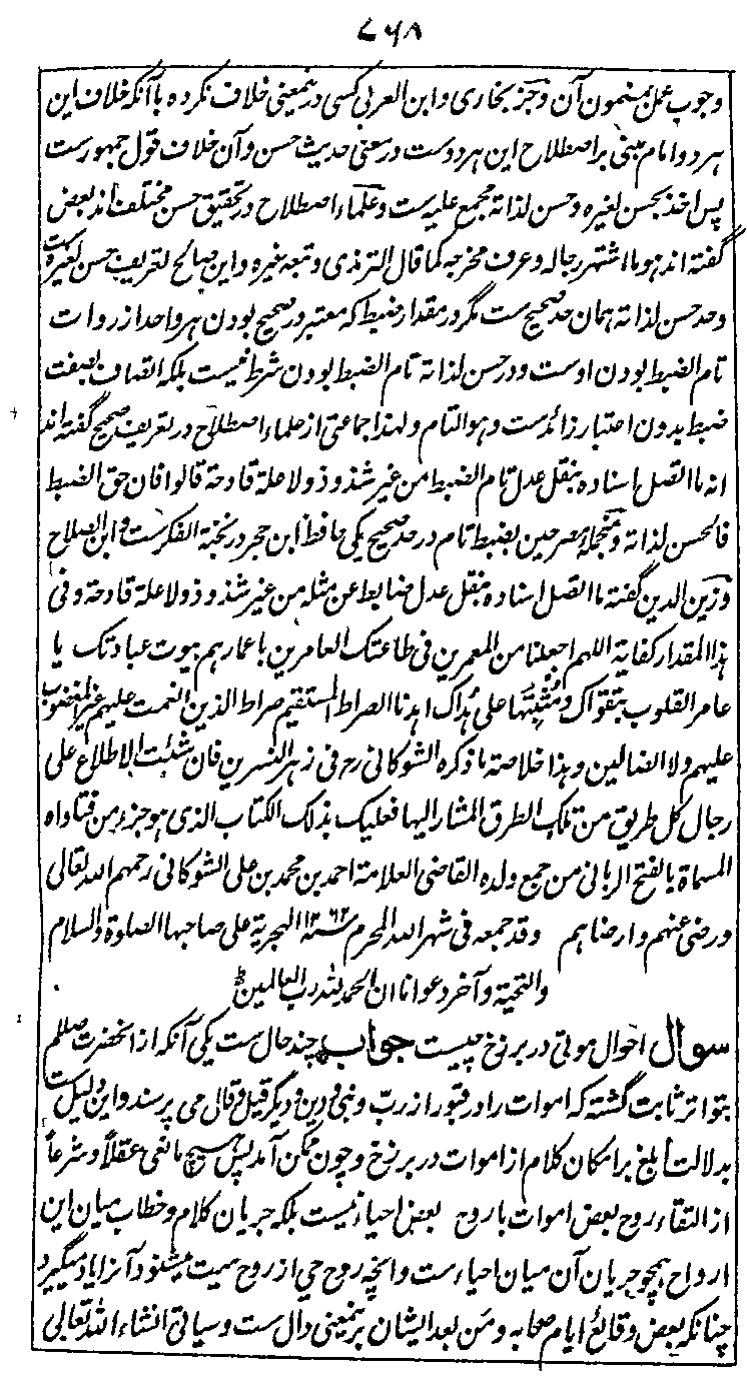 ۷۶۸
وجوب عمل بمضمون آن وجز بخاری و ابن العربی کسی درینمعنی خلاف نکرده با آنکه خلاف این
هر دو امام مبنی بر اصطلاح این هر دوست در معنی حدیث حسن و آن خلاف قول جمهورست
پس اخذ بحسن لغیره و حسن لذاته مجمع علیه ست و علماء اصطلاح در تحقیق حسن مختلف اند بعض
گفته اند هو ما اشتهر رجاله وعرف مخرجه کما قال الترمذی وتبعه غیره و این صالح تعریف حسن لغیره ست
وحد حسن لذاته همان حد صحیح ست مگر در مقدار ضبط که معتبر در صحیح بودن هر واحد از روات
تام الضبط بودن اوست و در حسن لذاته تام الضبط بودن شرط نیست بلکه اتصاف بصفت
ضبط بدون اعتبار زائدست وهو التام ولهذا جماعتی از علماء اصطلاح در تعریف صحیح گفته اند
انه ما اتصل اسناده بنقل عدل تام الضبط من غیر شذوذ ولا علة قادحة قالوا فان خف الضبط
فالحسن لذاته و منجمله مصرحین بضبط تام در حد صحیح یکی حافظ ابن حجر در نخبة الفکرست و ابن الصلاح
وزین الدین گفته ما اتصل اسناده بنقل عدل ضابط عن مثله من غیر شذوذ ولا علة قادحة وفی
هذا المقدار کفایة اللهم اجعلنا من المعمرین فی طاعتک العامرین باعمارهم بیوت عبادتک یا
عامر القلوب بتقواک ومثبتها علی هداک اهدنا الصراط المستقیم صراط الذین انعمت علیهم غیر المغضوب
علیهم ولا الضالین وهذا خلاصة ما ذکره الشوکانی رح فی زهر النسرین فان شئت الاطلاع علی
رجال کل طریق من تلک الطرق المشار الیها فعلیک بذلک الکتاب الذی هو جزء من فتاواه
المسماة بالفتح الربانی من جمع ولده القاضی العلامة احمد بن محمد بن علی الشوکانی رحمهم الله تعالی
ورضی عنهم وارضاهم وقد جمعه فی شهر الله المحرم سنة ۱۲۶۲ الهجریة علی صاحبها الصلوة والسلام
والتحیة وآخر دعوانا ان الحمد لله رب العالمین
سوال احوال موتی در برزخ چیست جواب چند حال ست یکی آنکه از آنحضرت صللم
بتواتر ثابت گشته که اموات را در قبور از رب ونبی ودین و دیگر قیل وقال می پرسند و این دلیل ست
بدلالت ابلغ بر امکان کلام از اموات در برزخ و چون ممکن آمد پس هیچ مانعی عقلاً وشرعاً
از التقاء روح بعض اموات با روح بعض احیاء نیست بلکه جریان کلام وخطاب میان این
ارواح همچو جریان آن میان احیاء ست و آنچه روح حی از روح میت میشنود آنرا یاد میگیرد
چنانکه بعض وقائع ایام صحابه ومن بعد ایشان برینمعنی دال ست وسیاتی انشاء الله تعالی